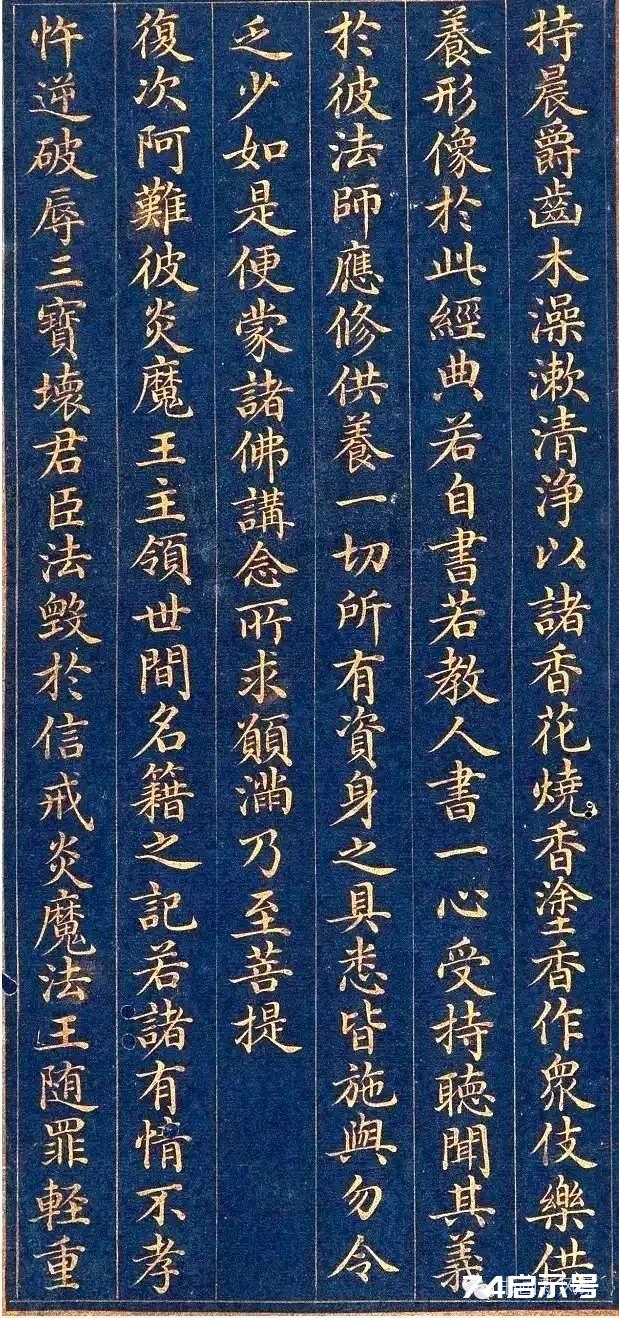 持晨爵齒木澡漱清淨以諸香花燒香塗香作衆伎樂供
養形像於此經典若自書若教人書一心受持聽聞其義
於彼法師應修供養一切所有資身之具悉皆施與勿令
乏少如是便蒙諸佛講念所求願滿乃至菩提
復次阿難彼炎魔王主領世間名籍之記若諸有情不孝
忤逆破辱三寶壞君臣法毀於信戒炎魔法王随罪輕重
启示号